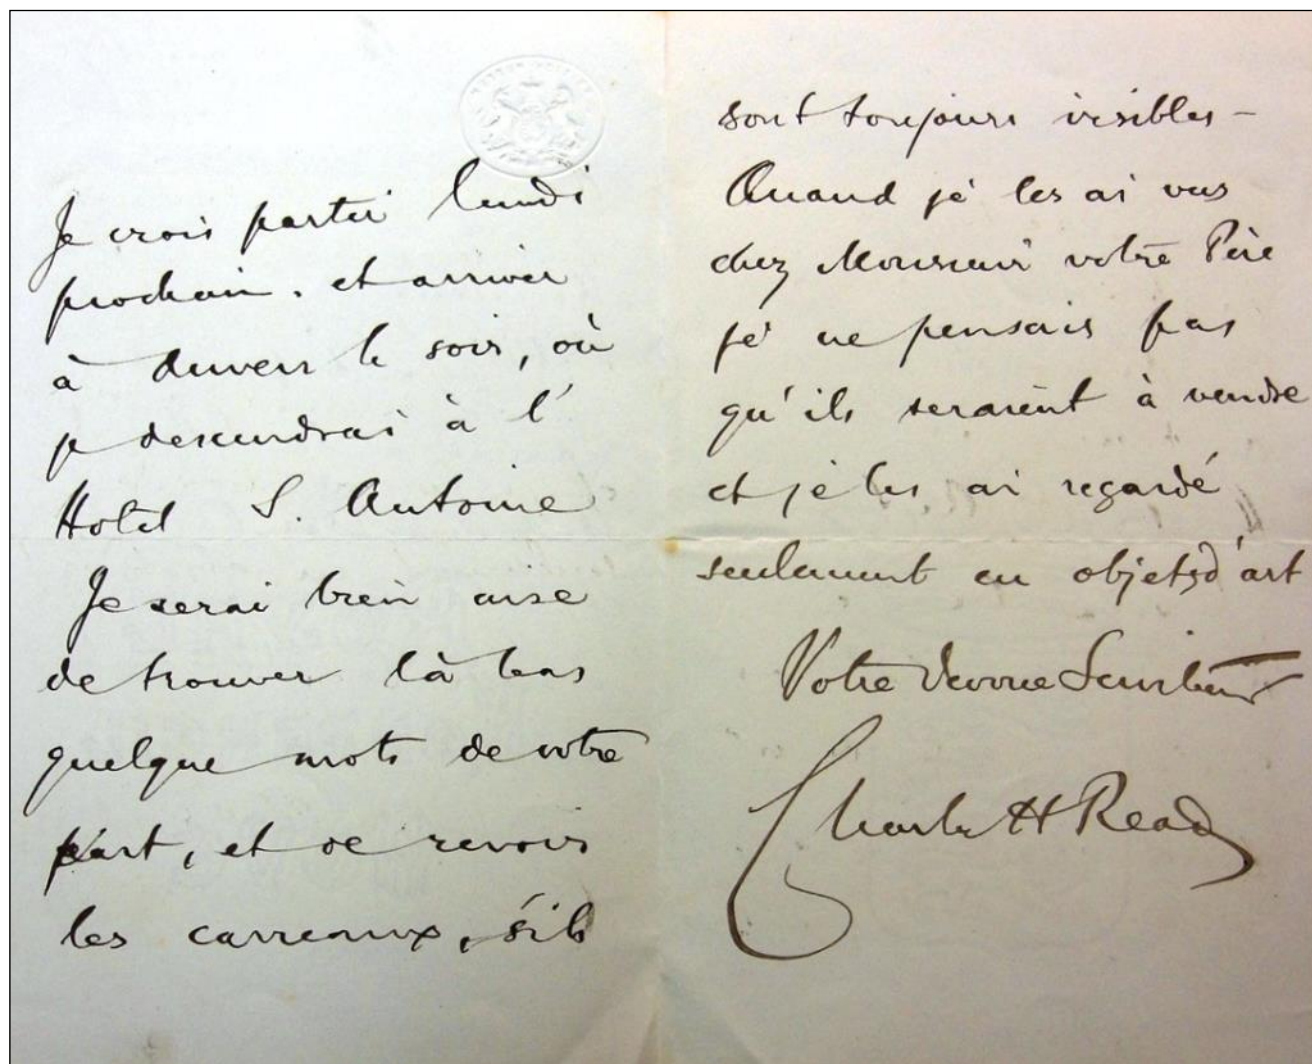 Je crois partir lundi
prochain. et arriver
à Anvers le soir, où
je descendrai à l'
Hotel S. Antoine
Je serai bien aise
de trouver là bas
quelque mots de votre
part, et de revoir
les carreaux, s'ils
sont toujours visibles –
Quand je les ai vus
chez Monsieur votre Père
je ne pensais pas
qu'ils seraient à vendre
et je les ai regardé
seulement en objets d'art
Votre devoué Serviteur
Charles H Read